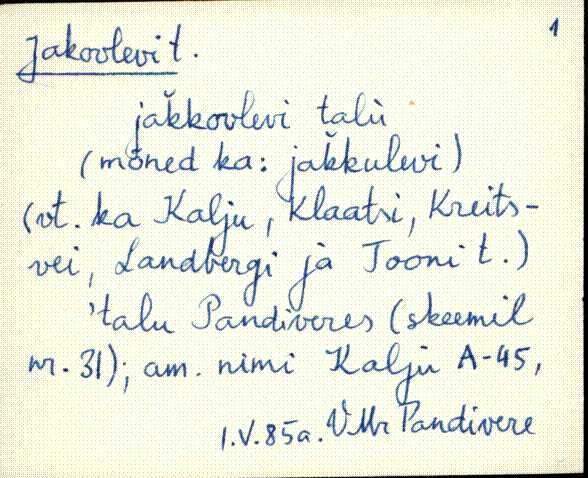 1
Jakovlevi t.
jaǩkovlevi talu̇
(mȯned ka: jaǩkulevi)
(vt. ka Kalju, Klaatsi, Kreits-
vei, Landbergi ja Tooni t.)
'talu Pandiveres (skeemil
nr. 31); am. nimi Kalju A-45,
1.V.85a. VMr Pandivere